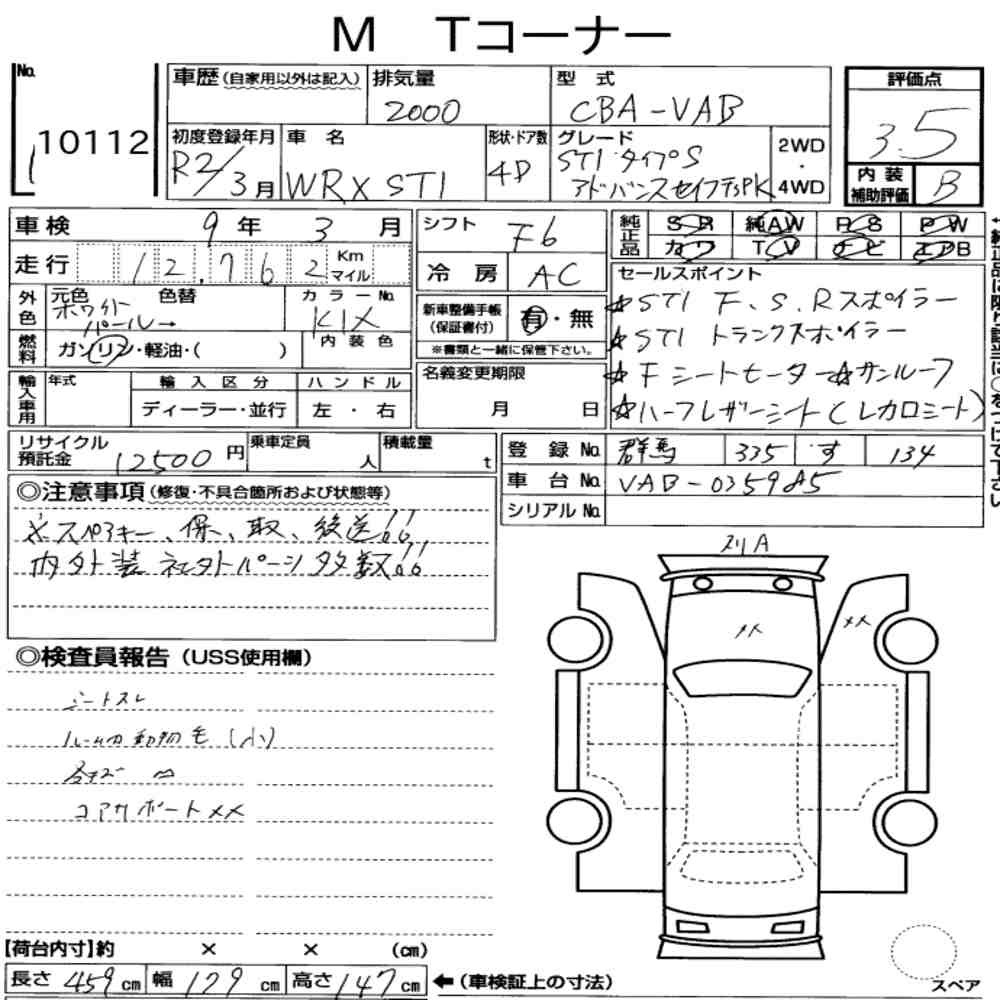 M Tコーナー
No. 10112
車歴 (自家用以外は記入)
排気量 2000
型式 CBA-VAB
評価点 3.5
初度登録年月 R2/3月
車名 WRX STI
形状・ドア数 4D
グレード STI タイプS アドバンスセイフティPK
2WD・4WD
内装補助評価 B
車検 9年 3月
シフト F6
純正品 SR 純AW PS PW
カワ TV ナビ エアB
走行 12,762 Km マイル
冷房 AC
セールスポイント
☆STI F、S、Rスポイラー
☆STI トランクスポイラー
☆Fシートヒーター☆サンルーフ
☆ハーフレザーシート(レカロシート)
外色 元色 ホワイトパール→ 色替
カラーNo. K1X
内装色
新車整備手帳(保証書付) 有・無
※書類と一緒に保管下さい。
燃料 ガソリン・軽油・( )
名義変更期限 月 日
輸入車用 年式 輸入区分 ハンドル
ディーラー・並行 左・右
リサイクル預託金 12500円
乗車定員 人
積載量 t
登録No. 群馬 335 す 134
車台No. VAB-035985
シリアルNo.
◎注意事項(修復・不具合箇所および状態等)
※スペアキー、保、取、後送!!
内外装社外パーツ多数!!
◎検査員報告(USS使用欄)
シートスレ
ルーム内動物毛(小)
コアサポートXX
スリA
XX
XX
【荷台内寸】約 × × (cm)
長さ 459cm 幅 179cm 高さ 147cm ←(車検証上の寸法)
スペア